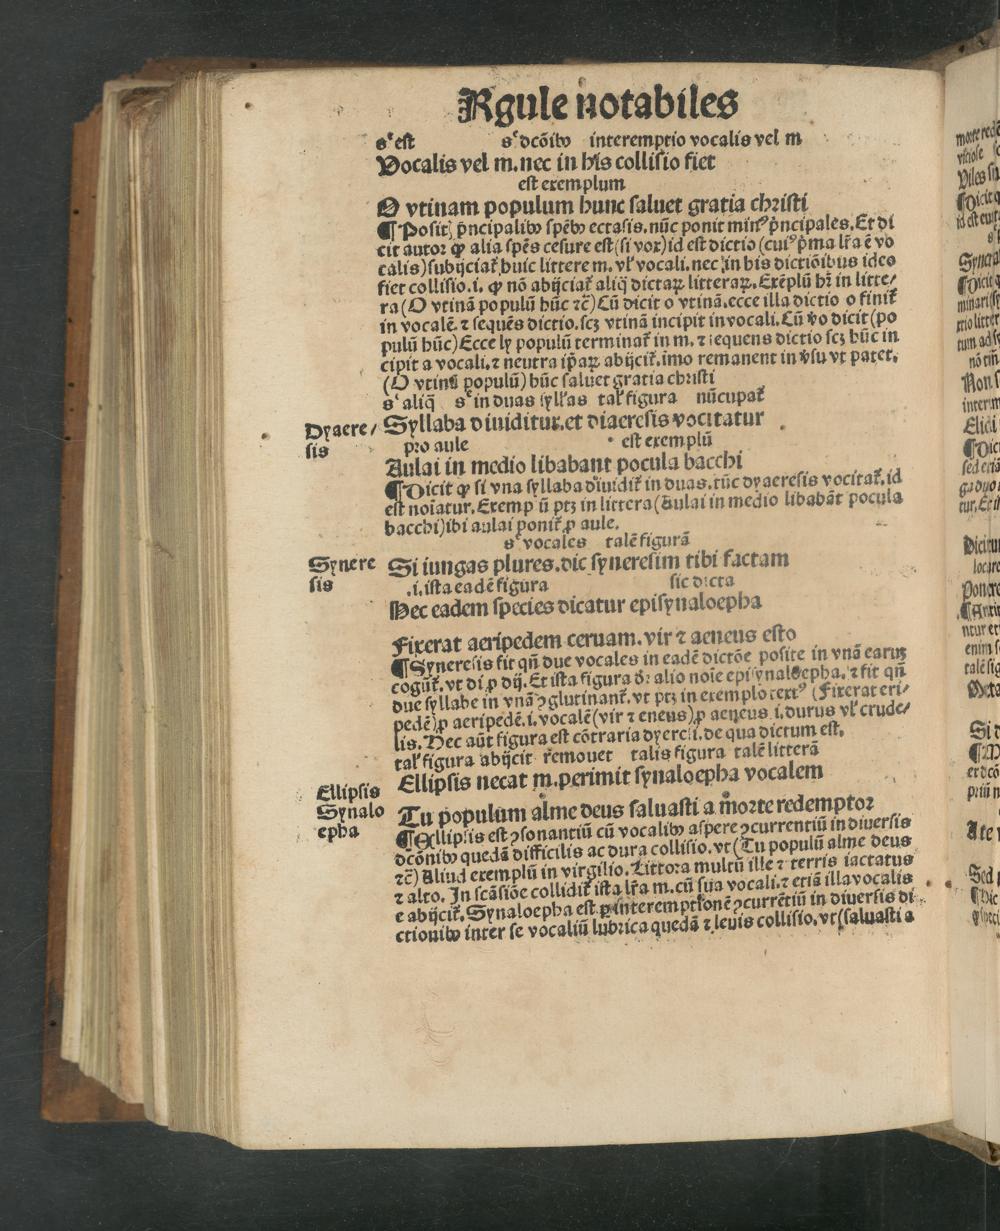 Rgule notabiles
s᷒ est s᷒ dcõib⁹ interemptio vocalis vel m
Vocalis vel m. nec in his collisio fiet
est exemplum
O vtinam populum hunc saluet gratia christi
¶ Posit̃ p̃ncipalib⁹ spẽb⁹ ectasis. nũc ponit min⁹ p̃ncipales. Et di
cit autor ꝙ alia spẽs cesure est (si vox) id est dictio (cui⁹ p̃ma lr̃a ẽ vo
calis) subijciat̃ huic littere m. vl̓ vocali. nec in his dictiõibus ideo
fiet collisio. i. ꝙ nõ abijciat̃ aliq̃ dictaꝝ litteraꝝ. Exẽplũ hr̃ in litte/
ra (O vtinã populũ hũc ⁊c̃) Cũ dicit o vtinã. ecce illa dictio o finit̃
in vocalẽ. ⁊ sequẽs dictio. scꝫ vtinã incipit in vocali. Cũ ṽo dicit (po
pulũ hũc) Ecce ly populũ terminat̃ in m. ⁊ sequens dictio scꝫ hũc in
cipit a vocali. ⁊ neutra ip̃aꝝ abijcit̃. imo remanent in ṽsu vt patet.
(O vtinã populũ) hũc saluet gratia christi
s᷒ aliq̃ s᷒ in duas syll̓as tal̓ figura nũcupat̃
Syllaba diuiditur. et diaeresis vocitatur
pro aule est exemplũ
Aulai in medio libabant pocula bacchi
¶ Dicit ꝙ si vna syllaba diuidit̃ in duas. tũc dyaeresis vocitat̃. id
est noĩatur. Exemplũ ptꝫ in littera (Aulai in medio libabãt pocula
bacchi) ibi aulai ponit̃ ꝓ aule.
s᷒ vocales talẽ figurã
Si iungas plures. dic syneresim tibi factam
.i. ista eadẽ figura sic dicta
Hec eadem species dicatur episynaloepha
Fixerat aeripedem ceruam. vir ⁊ aeneus esto
¶ Syneresis fit qñ due vocales in eadẽ dictõe posite in vnã earuꝫ
cogũt̃. vt di ꝓ dij. Et ista figura dr̃ alio noĩe episynaloepha. ⁊ fit qñ
due syllabe in vnã ꝯglutinant̃. vt ptꝫ in exemplo text⁹ (Fixerat eri/
pedẽ) ꝓ aeripedẽ. i. vocalẽ (vir ⁊ eneus) ꝓ aeneus .i. durus vl̓ crude/
lis. Hec aũt figura est cõtraria dyeresi. de qua dictum est.
tal̓ figura abijcit remouet talis figura talẽ litterã
Ellipsis necat m. perimit synaloepha vocalem
Tu populum alme deus saluasti a morte redemptor
¶ Ellipsis est ꝯsonantiũ cũ vocalib⁹ aspere ꝯcurrentiũ in diuersis
dcõnib⁹ quedã difficilis ac dura collisio. vt (Tu populũ alme deus
⁊c̃) Aliud exemplũ in virgilio. Littora multũ ille ⁊ terris iactatus
⁊ alto. In scãsiõe collidit̃ ista lr̃a m. cũ sua vocali. ⁊ etiã illa vocalis
e abijcit̃. Synaloepha est ꝑ interemptionẽ ꝯcurrẽtiũ in diuersis di
ctionib⁹ inter se vocaliũ lubrica quedã ⁊ leuis collisio. vt (saluasti a
Dyaere/
sis
Synere
sis
Ellipsis
Synalo
epha